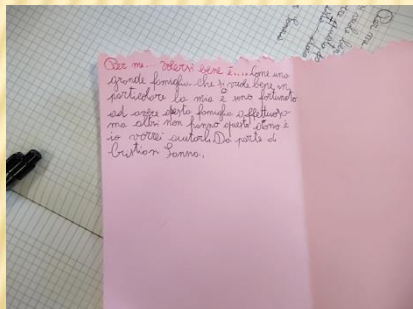 Per me... volersi bene è.... Come una
grande famiglia che si vuole bene, in
particolare la mia è uno fortunato
ad avere questa famiglia affettuosa
ma altri non hanno questo dono è
io vorrei aiutarli. Da parte di
Cristian Sanna.
Per me